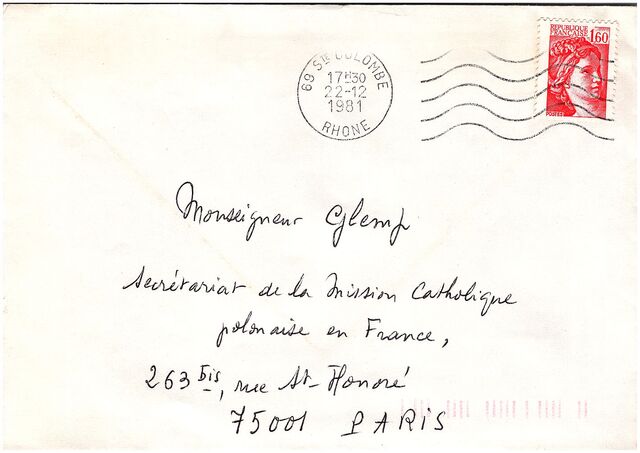 RÉPUBLIQUE
FRANÇAISE
1,60
POSTES
69 STE COLOMBE
17H30
22-12
1981
RHONE
Monseigneur Glemp
Secrétariat de la Mission Catholique
polonaise en France,
263 bis, rue St-Honoré
75001 PARIS